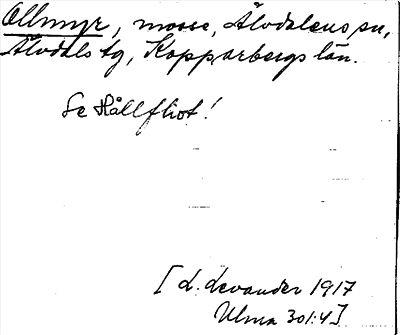 Ollmyr, mosse, Älvdalens sn,
Älvdals tg, Kopparbergs län.
Se Hållfliot!
[L. Levander 1917
Ulma 301:4]